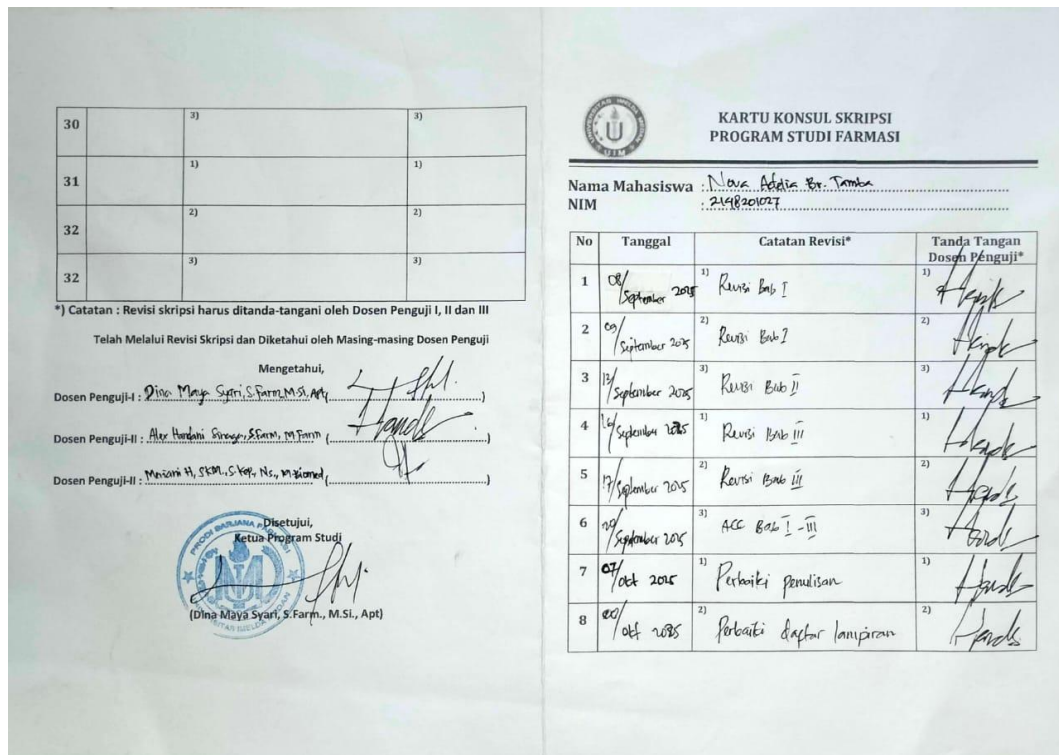 30 3) 3)
31 1) 1)
32 2) 2)
32 3) 3)
*) Catatan : Revisi skripsi harus ditanda-tangani oleh Dosen Penguji I, II dan III
Telah Melalui Revisi Skripsi dan Diketahui oleh Masing-masing Dosen Penguji
Mengetahui,
Dosen Penguji-I : Dina Maya Syari, S.Farm, M.Si, Apt (....................)
Dosen Penguji-II : Alex Handani Sinaga, S.Farm, M.Farm (....................)
Dosen Penguji-II : H, SKM., S.Kep, Ns., M.Biomed (....................)
Disetujui,
Ketua Program Studi
PRODI SARJANA
(Dina Maya Syari, S.Farm., M.Si., Apt)
UNIVERSITAS IMELDA MEDAN
UIM
KARTU KONSUL SKRIPSI
PROGRAM STUDI FARMASI
Nama Mahasiswa : Nova Addia Br. Tamba
NIM : 2148201027
No Tanggal Catatan Revisi* Tanda Tangan
Dosen Penguji*
1 08/September 2025 1) Revisi Bab I 1)
2 09/September 2025 2) Revisi Bab I 2)
3 /September 2025 3) Revisi Bab II 3)
4 16/September 2025 1) Revisi Bab III 1)
5 17/September 2025 2) Revisi Bab III 2)
6 /September 2025 3) ACC Bab I - III 3)
7 07/okt 2025 1) Perbaiki penulisan 1)
8 /okt 2025 2) Perbaiki daftar lampiran 2)